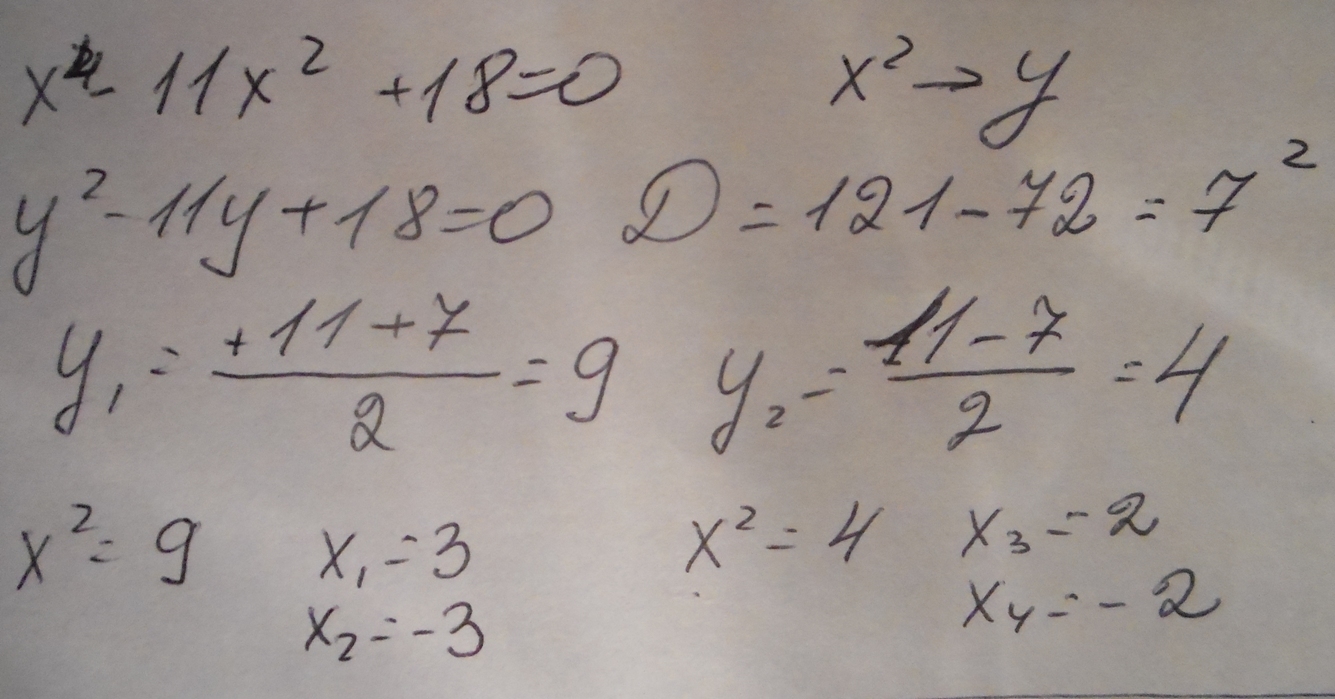 x⁴ - 11x² + 18 = 0 x² → y
y² - 11y + 18 = 0 D = 121 - 72 = 7²
y₁ = (+11 + 7)/2 = 9 y₂ = (11 - 7)/2 = 4
x² = 9 x₁ = 3 x² = 4 x₃ = 2
x₂ = -3 x₄ = -2